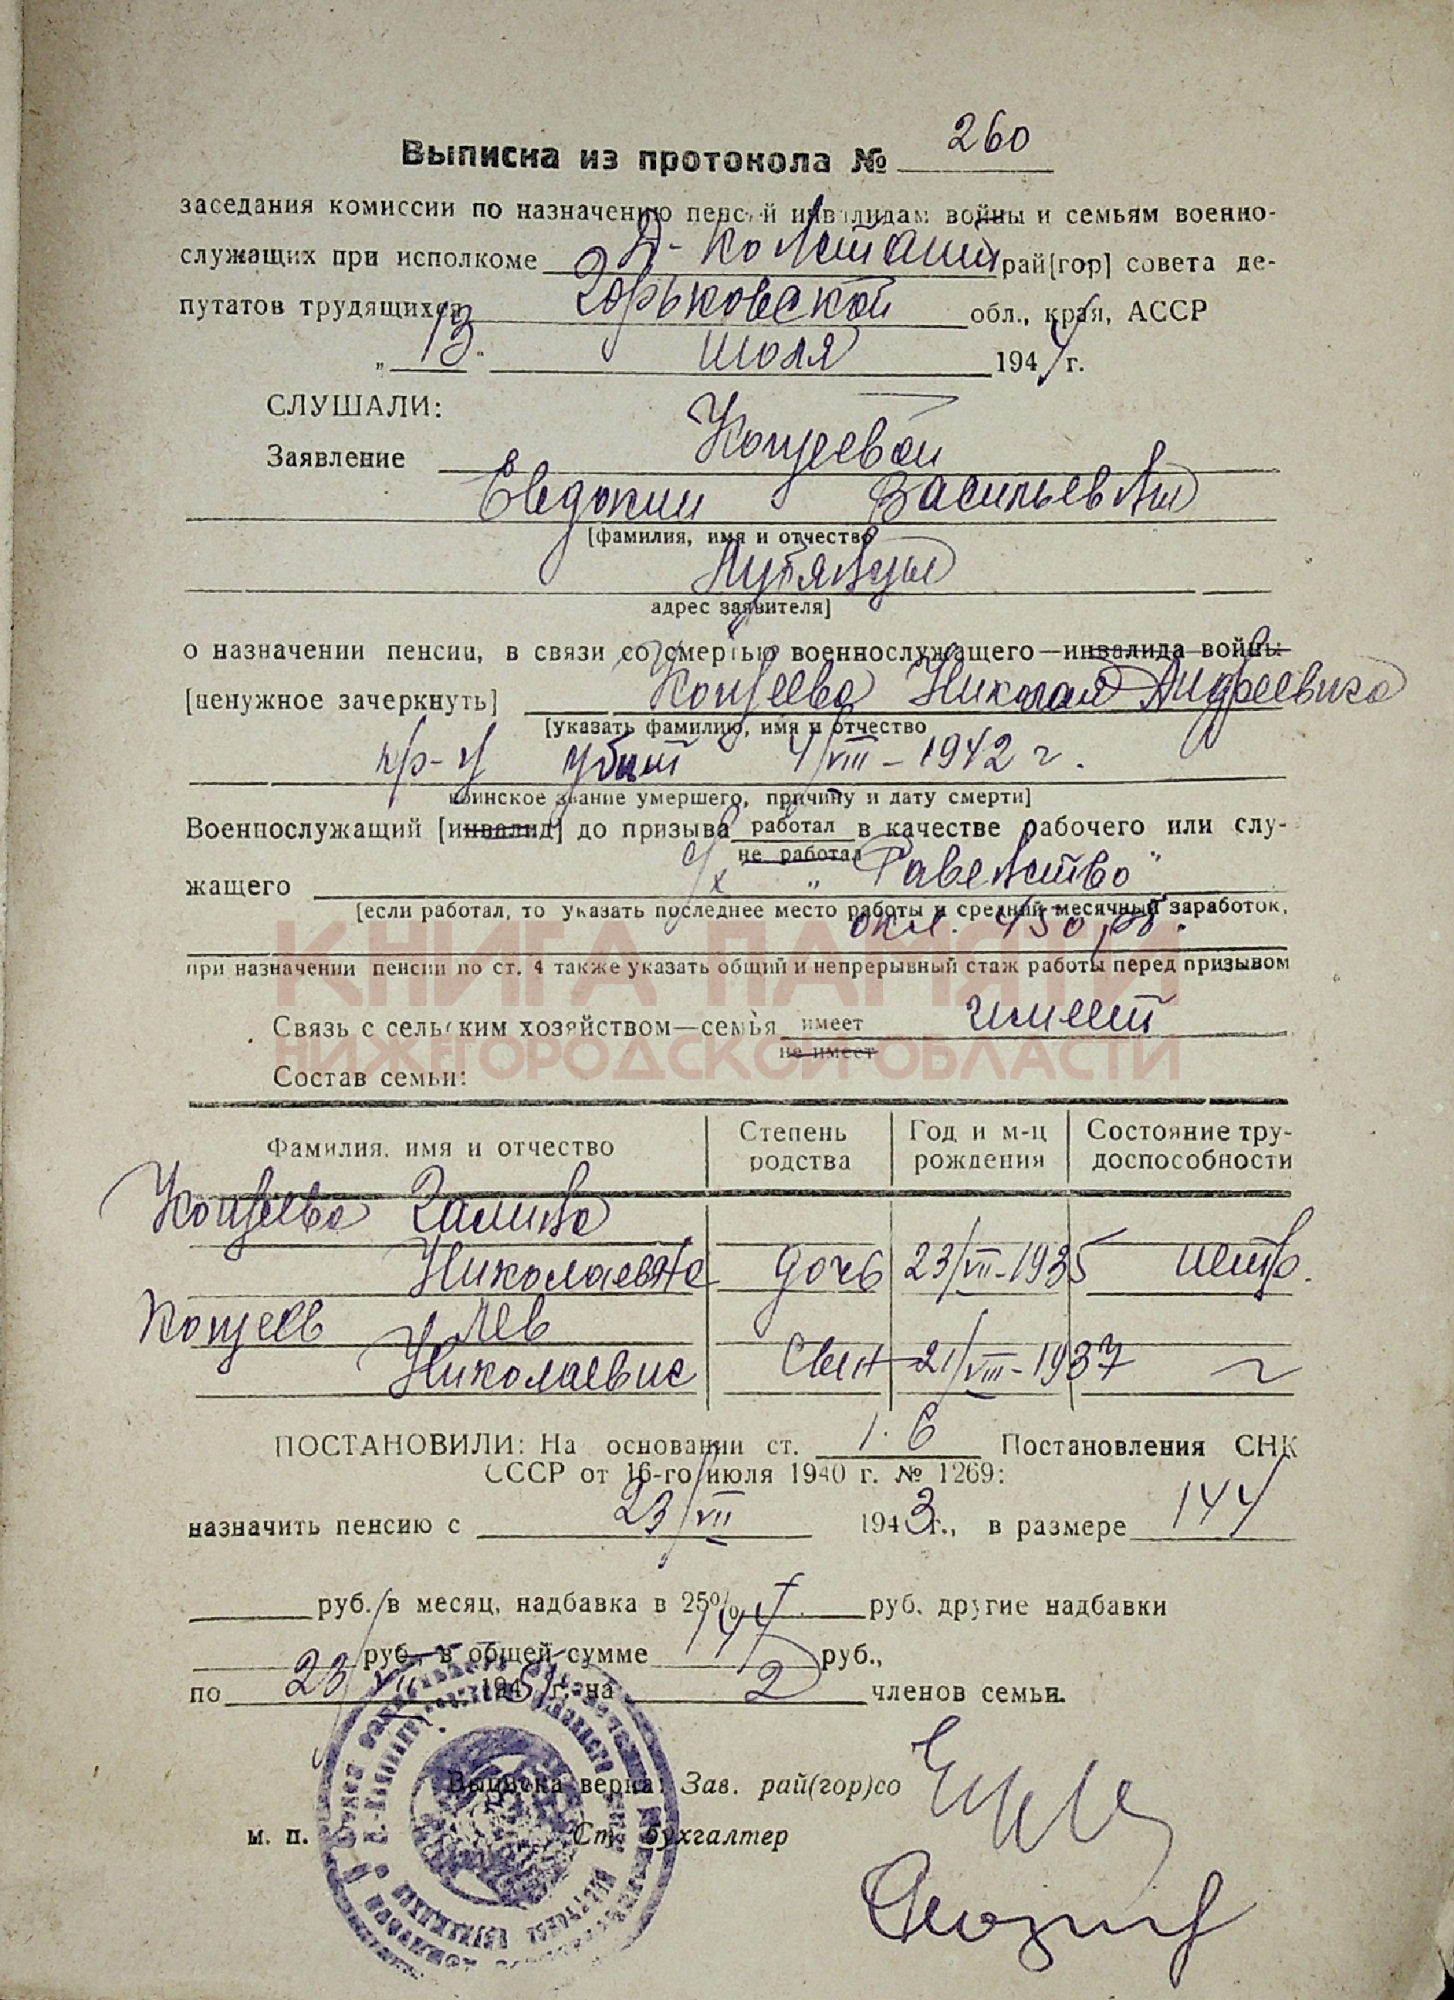 Выписка из протокола № 260
заседания комиссии по назначению пенсий инвалидам войны и семьям военно-
служащих при исполкоме Д-Константин рай[гор] совета де-
путатов трудящихся Горьковской обл., края, АССР
„ 13 " июля 1944 г.
СЛУШАЛИ:
Заявление Кощеевой
Евдокии Васильевны
[фамилия, имя и отчество
Лубянцы
адрес заявителя]
о назначении пенсии, в связи со смертью военнослужащего—инвалида войны
[ненужное зачеркнуть] Кощеева Николая Андреевича
[указать фамилию, имя и отчество
кр-ц убит 4/VIII-1942 г.
воинское звание умершего, причину и дату смерти]
Военнослужащий [инвалид] до призыва работал в качестве рабочего или слу-
не работал
жащего „Равенство"
[если работал, то указать последнее место работы и средний месячный заработок,
окл. 450 руб.
при назначении пенсии по ст. 4 также указать общий и непрерывный стаж работы перед призывом
КНИГА ПАМЯТИ
НИЖЕГОРОДСКОЙ ОБЛАСТИ
Связь с сельским хозяйством—семья имеет имеет
не имеет
Состав семьи:
Фамилия, имя и отчество Степень родства Год и м-ц рождения Состояние тру-доспособности
Кощеева Галина
Николаевна дочь 23/VII-1935 нетр.
Кощеев Лев
Николаевич сын 21/VIII-1937
ПОСТАНОВИЛИ: На основании ст. 1.6 Постановления СНК
СССР от 16-го июля 1940 г. № 1269:
назначить пенсию с 23/VII 1943 г., в размере 144
руб. в месяц, надбавка в 25% руб. другие надбавки
руб., в общей сумме 144 руб.,
по 23/VII 1951 г. на 2 членов семьи.
Выписка верна: Зав. рай(гор)со
м. п. Ст. бухгалтер